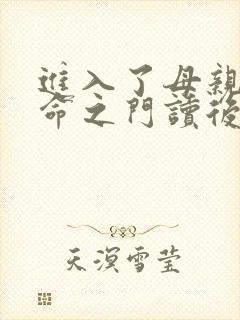 進入了母親
命之門讀後
天溟雪莹